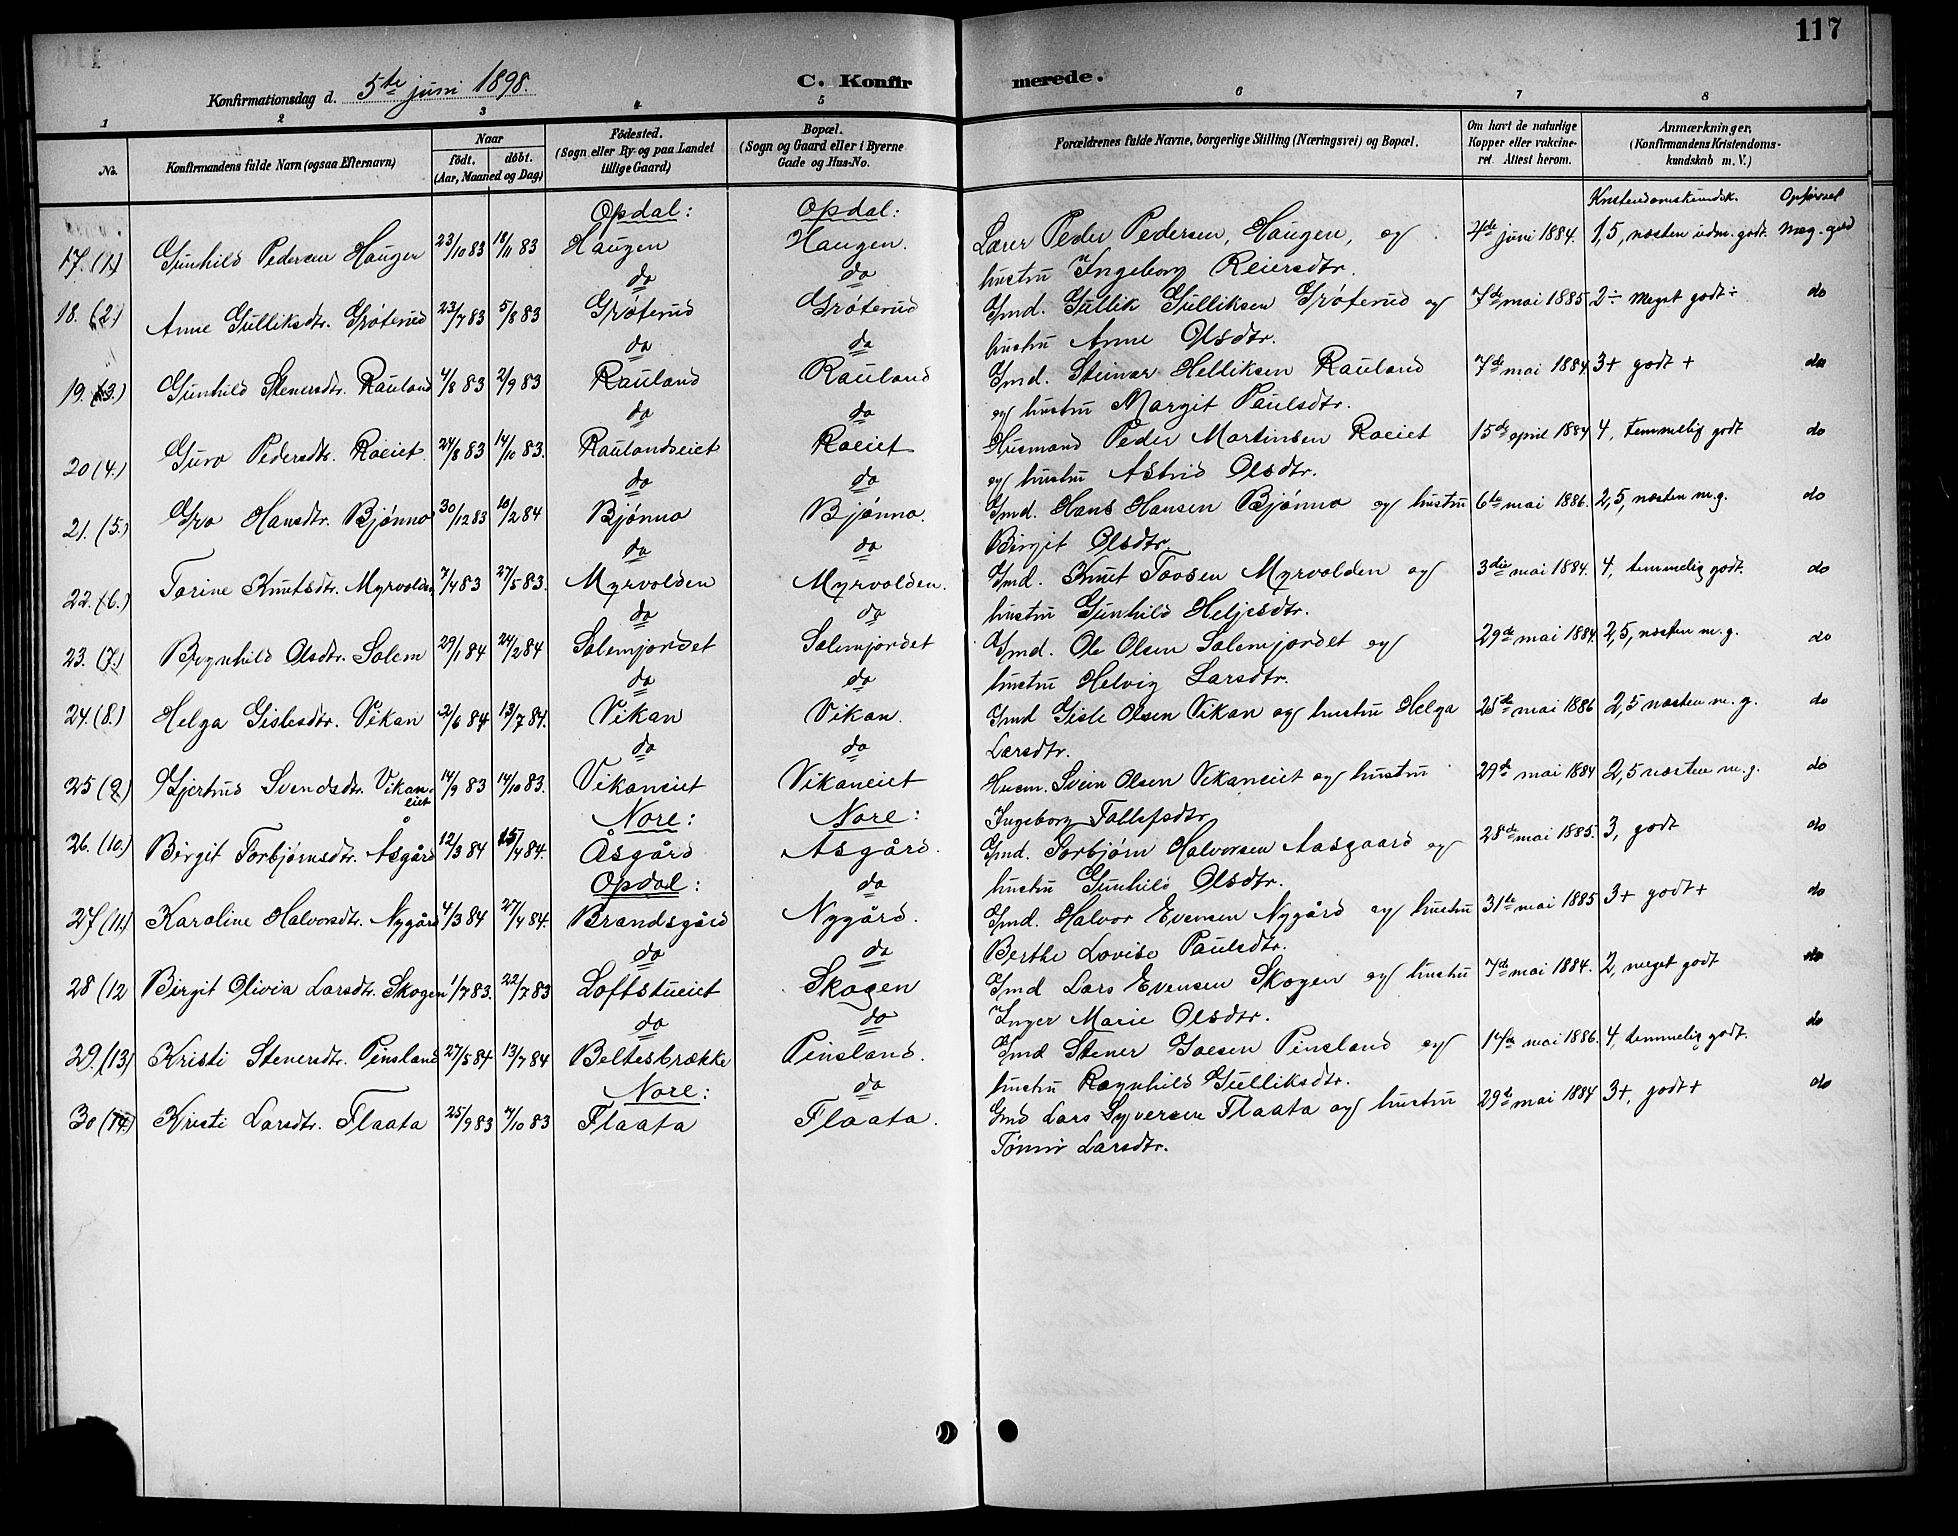 117
Konfirmationsdag d. 5te juni 1898. C. Konfirmerede.
1 2 3 4 5 6 7 8
No. Konfirmandens fulde Navn (ogsaa Efternavn) Naar født, døbt. (Aar, Maaned og Dag) Fødested. (Sogn eller By og paa Landet tillige Gaard) Bopæl. (Sogn og Gaard eller i Byerne Gade og Hus-No. Forældrenes fulde Navne, borgerlige Stilling (Næringsvei) og Bopæl. Om havt de naturlige Kopper eller vaccineret. Attest herom. Anmærkninger. (Konfirmandens Kristendomskundskab m. V.)
Opdal: Opdal: Kristendomskundsk. Opførsel
17. (1) Gunhild Pedersen Haugen 23/10 83 18/11 83 Haugen Haugen. Lærer Peder Pedersen, Haugen, og 4de juni 1884. 1,5, næsten udm. godt. Meg. god
do do hustru Ingeborg Reiersdtr.
18. (2) Anne Gulliksdtr. Grøterud 23/7 83 5/8 83 Grøterud Grøterud Gmd. Gullik Gulliksen Grøterud og 7de mai 1885 2÷ meget godt÷ do
do do hustru Anne Olsdtr.
19. (3.) Gunhild Stenersdtr. Rauland 4/8 83 2/9 83 Rauland Rauland Gmd. Steinar Helliksen Rauland 7de mai 1884 3+ godt + do
do do og hustru Margit Paulsdtr.
20 (4.) Guro Pedersdtr. Roeiet 24/8 83 14/10 83. Raulandseiet Roeiet Husmand Peder Martinsen Roeiet 15de april 1884 4, temmelig godt do
do do og hustru Astrid Olsdtr.
21. (5.) Gro Hansdtr. Bjønno 30/12 83 10/2 84 Bjønno Bjønno. Gmd. Hans Hansen Bjønno og hustru 6te mai 1886. 2,5, næsten m.g. do
do do Birgit Olsdtr.
22. (6.) Torine Knutsdtr. Myrvolden 7/4 83 27/5 83. Myrvolden Myrvolden. Gmd. Knut Tovsen Myrvolden og 3die mai 1884. 4, temmelig godt. do
do do hustru Gunhild Heljesdtr.
23. (7.) Brynhild Olsdtr. Solem 29/1 84 24/2 84 Solemjordet Solemjordet Gmd. Ole Olsen Solemjordet og 29de mai 1884. 2,5, næsten m.g. do
do do hustru Helvig Larsdtr.
24. (8.) Helga Gislesdtr. Vikan 2/6 84 13/7 84. Vikan Vikan. Gmd Gisle Olsen Vikan og hustru Helga 25de mai 1886 2,5 næsten m.g. do
do do Larsdtr.
25 (9) Gjertrud Svendsdtr. Vikaneiet 14/9 83 14/10 83. Vikaneiet Vikaneiet Husm. Svein Olsen Vikaneiet og hustru 29de mai 1884 2,5 næsten m.g. do
Nore: Nore: Ingeborg Tollefsdtr
26. (10.) Birgit Torbjørnsdtr. Åsgård 12/3 84 15/4 84. Åsgård Asgård. Gmd. Torbjørn Halvorsen Aasgaard og 28de mai 1885. 3, godt do
Opdal: do hustru Gunhild Olsdtr.
27 (11.) Karoline Halvorsdtr. Nygård 4/3 84 27/4 84. Brandsgård Nygård. Gmd. Halvor Evensen Nygård og hustru 31te mai 1885 3+ godt+ do
do do Berthe Lovise Paulsdtr.
28 (12 Birgit Olivia Larsdtr. Skogen 1/7 83. 22/7 83 Loftstueiet Skogen Gmd Lars Evensen Skogen og hustru 7de mai 1884. 2, meget godt do
do do Inger Marie Olsdtr.
29. (13) Kristi Stenersdtr. Pinsland 27/5 84 13/7 84 Beltesbrække Pinsland. Gmd Stener Pinsland og mai 1886. 4, temmelig godt. do
Nore: do hustru Ragnhild Gulliksdtr.
30 (14.) Kristi Larsdtr. Flaata 25/9 83 7/10 83 Flaata Flaata. Gmd Lars Syversen Flaata og hustru 29de mai 1884 3+, godt+ do
Larsdtr.